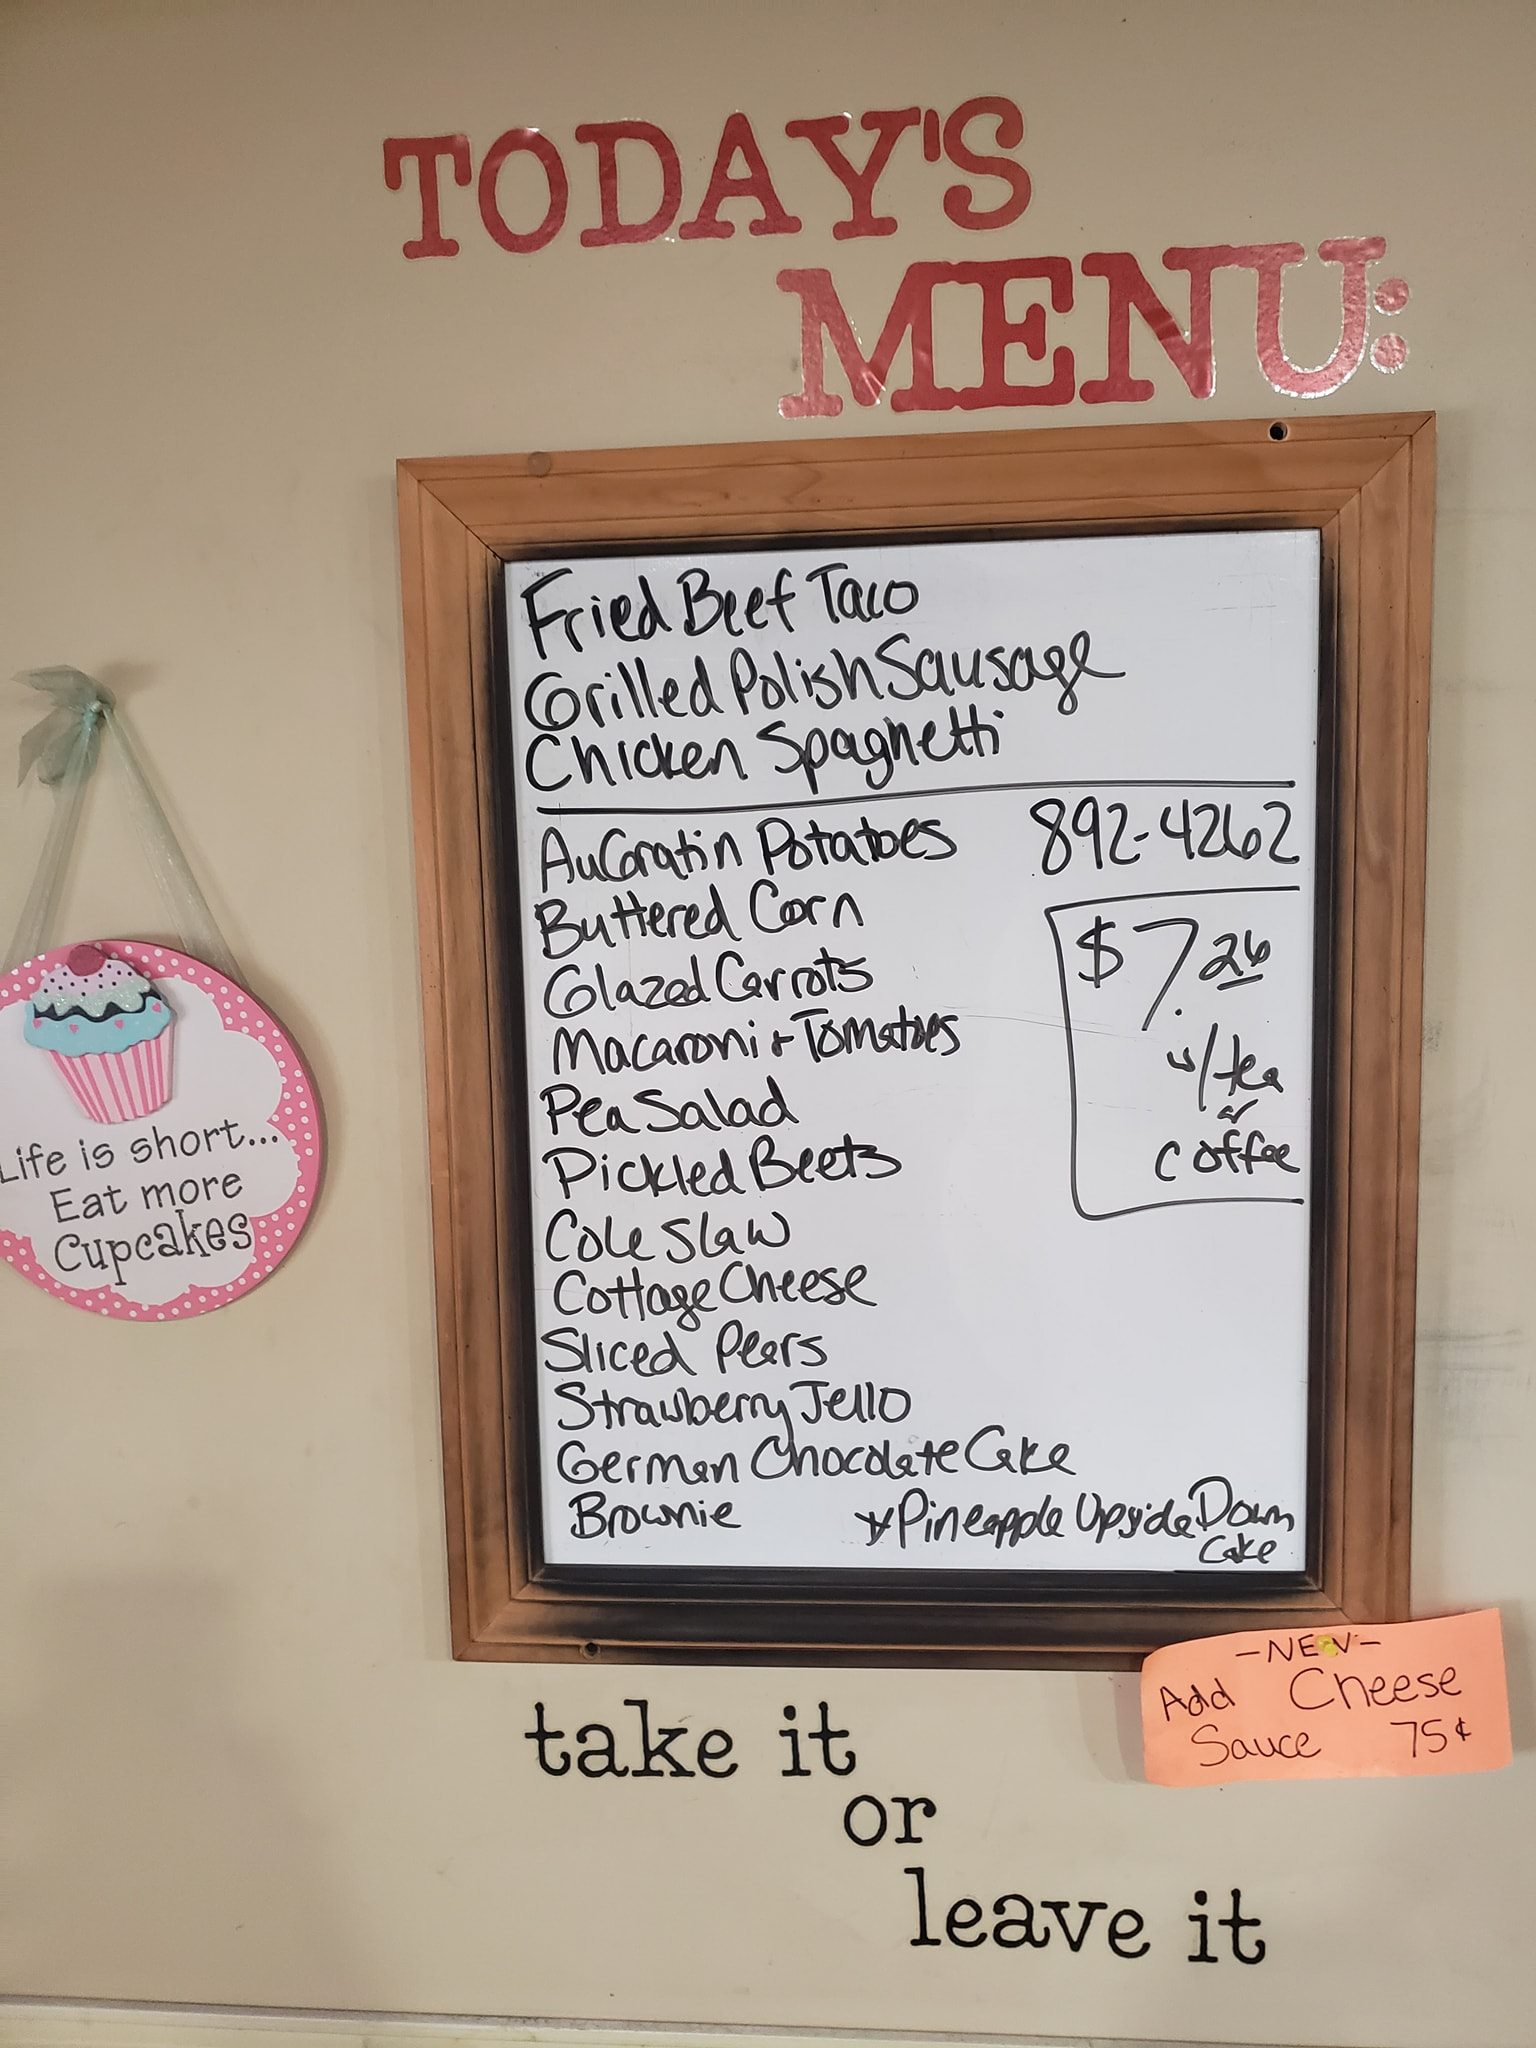 TODAY'S
MENU:
Fried Beef Taco
Grilled Polish Sausage
Chicken Spaghetti
AuGratin Potatoes
892-4262
Buttered Corn
$7.26
Glazed Carrots
Macaroni & Tomatoes
w/tea
Pea Salad
or
Pickled Beets
coffee
Cole Slaw
Cottage Cheese
Sliced Pears
Strawberry Jello
German Chocolate Cake
Brownie
*Pineapple Upside Down
Cake
Life is short...
Eat more
Cupcakes
-NEW-
Add Cheese
Sauce 75¢
take it
or
leave it